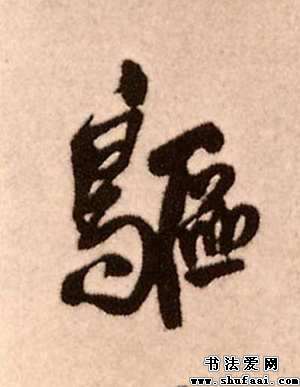 驅
书法爱网
www.shufaai.com